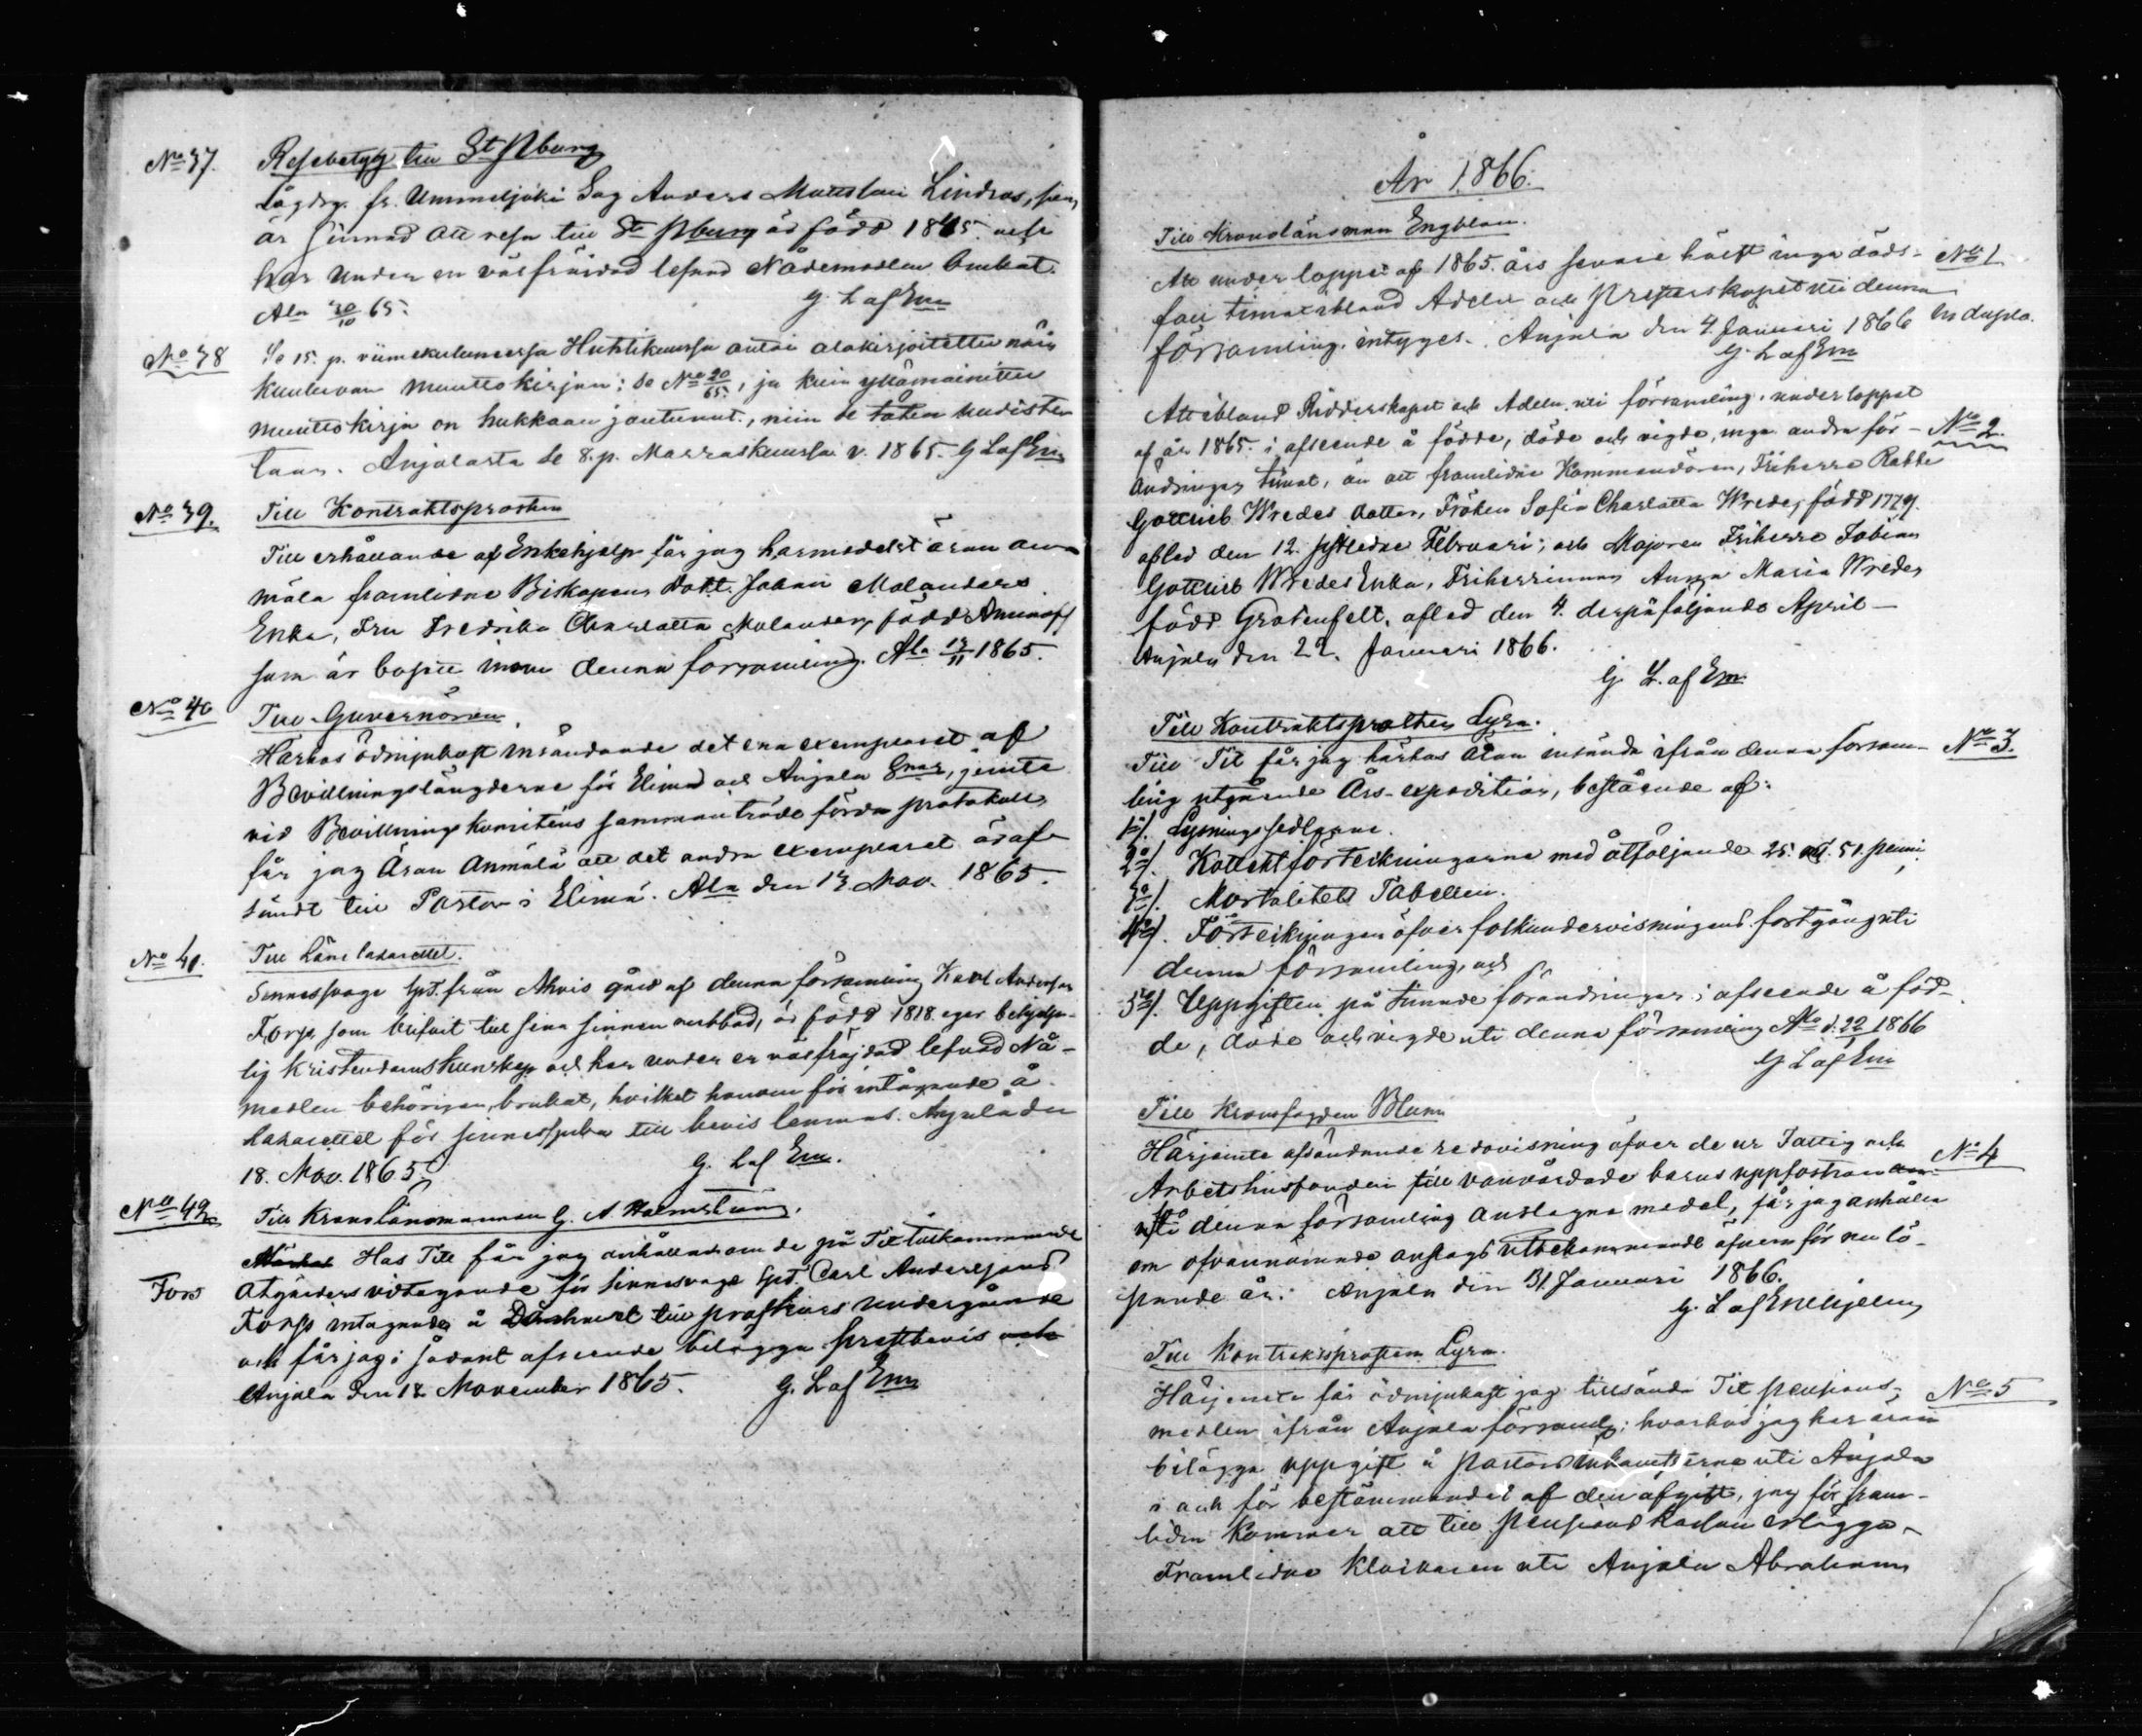 No 37. Resebetyg till St Pburg
Lågdrg. fr. Ummeljoki Såg Anders Mattsson Lindroos, som
är sinnad att resa till St Pburg är född 1845. och
har under en välfräjdad lefnad Nådemedlen brukat.
Ala 30/10 65. G. L af Em
No 38 Se 15. p. viimekuluneessa Huhtikuussa antoi alakirjoitettu näin
kuuluvan muuttokirjan: se No 20/65., ja kuin yllämainittu
muuttokirja on hukkaan joutunut, niin se täten uudiste-
taan. Anjalasta se 8. p. Marraskuussa v. 1865. G L af Em
No 39. Till Kontraktsprosten
Till erhållande af Enkehjelp får jag härmedelst äran an-
mäla framlidne Biskopens Dokt. Johan Molanders
Enka, Fru Fredrika Charlotta Molander, född Aminoff
som är bosatt inom denna församling. Ala 13/11 1865.
No 40 Till Guvernören
Härhos ödmjukast insändande det ena exemplaret af
Bevillningslängderne för Elimä och Anjala Snar, jemte
vid Bevillnings komiténs sammanträde förda protokoll,
får jag Äran Anmäla att det andra exemplaret är af-
sändt till Pastor i Elimä. Ala den 13 Nov. 1865.
No 41. Till Läns lasarettet.
Sinnessvage från gård af denna församling Karl Andersson
Forss, som blifvit till sina sinnen rubbad, är född 1818. eger behjelp-
lig Kristendomskunskap och har under en välfräjdad lefnad Nå-
medlen behörigen brukat, hvilket honom för intagande å
Lasarettet för sinnessjuka till bevis lemnas. Anjala den
18. Nov. 1865. G. L af Em.
No 42 Till Kronolänsmannen G. A. Holmström.
Hos Titl får jag anhålla om de på Tit tillkommande
Fors åtgärders vidtagande för sinnesvage Carl Anderssons
Forss intagande å Dårhuset till profkurs undergående
och får jag i sådant afseende bilägga prestbevis
Anjala den 18 November 1865. G. L af Em
År 1866.
Till Kronolänsman Engblom.
Att under loppet af 1865. års senare hälft inga döds- No 1
fall timat ibland Adeln och Presterskapet uti denna
församling, intyges. Anjala den 4 Januari 1866 In duplo.
G. L af Em
Att ibland Ridderskapet och Adeln uti församling. under loppet
af år 1865. i afseende å födde, döde och vigde, inga andra för- No 2.
ändringar timat, än att framlidne Kommendören, Friherre Rabbe
Gottlieb Wredes dotter, Fröken Sofia Charlotta Wrede, född 1779.
afled den 12. sistledne Februari; och Majoren Friherre Fabian
Gottlieb Wredes Enka, Friherrinnan Anna Maria Wrede,
född Grotenfelt, afled den 4. derpåföljande April—
Anjala den 22. Januari 1866.
G L. af Em
Till Kontraktsprosten Lyra.
Till Tit får jag härhos äran insända ifrån denna försam- No 3.
ling utgående Års-expedition, bestående af:
1o/. Lysningssedlarne.
2o/. Kollektförteckningarne med åtföljande 25. 51. penni,
3o/. Mortalitets Tabellen.
4o/. Förteckningen öfver folkundervisningens fortgång uti
denna församling, och
5o/. Uppgiften på timade förändringar i afseende å föd-
de, döde och vigde uti denna församling Ala d. 22/1 1866
G L af Em
Till Kronofogden Blum
Härjemte afsändande redovisning öfver de ur Fattig och No 4
Arbetshusfonden till vanvårdade barns uppfostran
uti denna församling anslagna medel, får jag anhålla
om ofvannämnde anslags utbekommande äfven för nu lö-
pande år. Anjala den 31. Januari 1866.
G. L af Enehjelm
Till Kontraktsprosten Lyra.
Härjemte får ödmjukast jag tillsända Tit pensions- No 5
medlen ifrån Anjala församlg; hvarhos jag har äran
bilägga uppgift å Pastorsinkomsterne uti Anjala
och för bestämmandet af den afgift, jag för fram-
liden kommer att till Pensions kassan erlägga.
Framlidne Klockaren uti Anjala Abraham